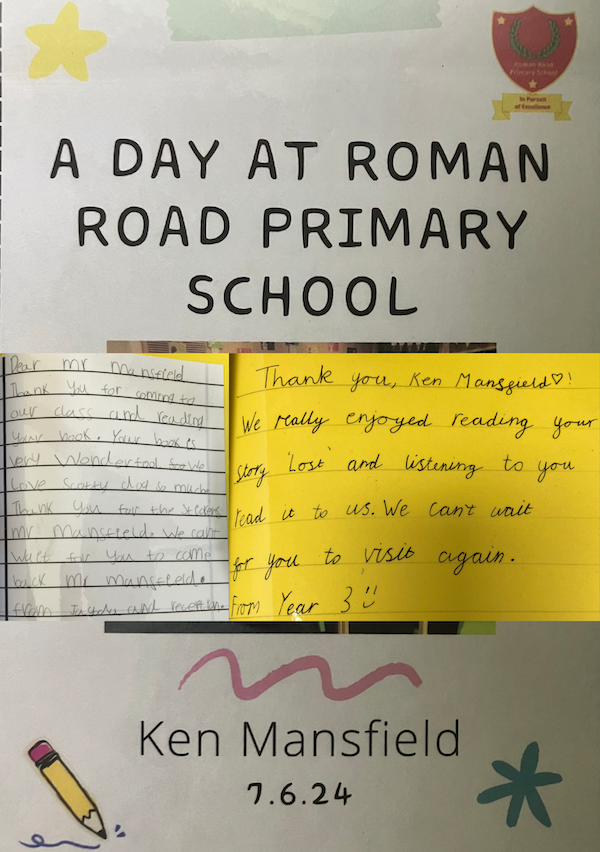 Roman Road
Primary School
In Pursuit
of Excellence
A DAY AT ROMAN
ROAD PRIMARY
SCHOOL
Dear mr mansfield
Thank you for coming to
our class and reading
your book. Your book is
very Wonderfool. We
Love Scotty dog so much
Thank you for the stickers
mr Mansfield. We can't
wait for you to come
back mr mansfield.
from and reception.
Thank you, Ken Mansfield♡!
We really enjoyed reading your
story 'Lost' and listening to you
read it to us. We can't wait
for you to visit again.
From Year 3
Ken Mansfield
7.6.24